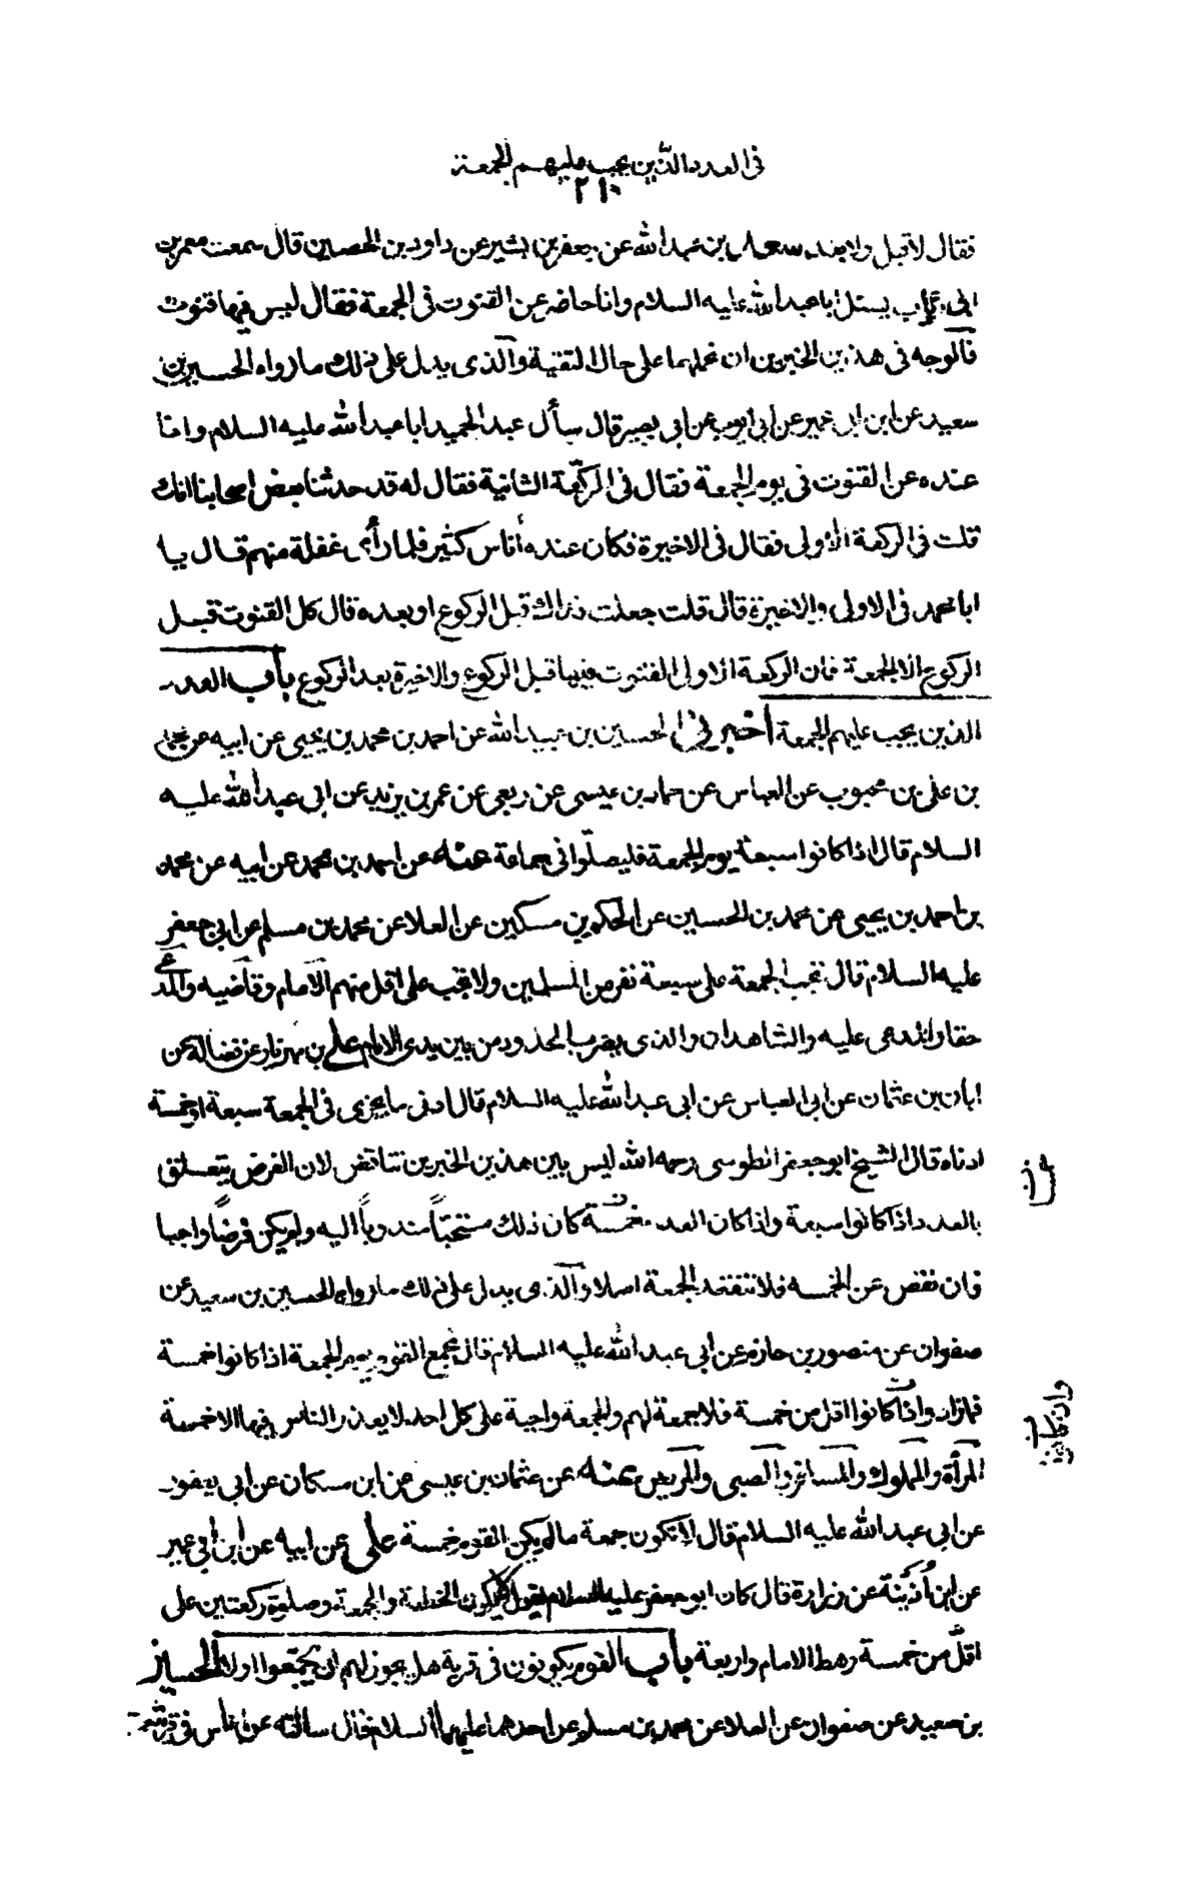 فى العدد الذين يجب عليهم الجمعة
٢١٠
فقال لا قبل ولا بعد سعد بن عبد الله عن جعفر بن بشير عن داود بن الحصين قال سمعت معمر بن
ابى رئاب يسئل ابا عبد الله عليه السلام وانا حاضر عن القنوت فى الجمعة فقال ليس فيها قنوت
فالوجه فى هذين الخبرين ان نحملهما على حال التقية والذى يدل على ذلك ما رواه الحسين بن
سعيد عن ابن ابى عمير عن ابى ايوب عن ابى بصير قال سأل عبد الحميد ابا عبد الله عليه السلام وانا
عنده عن القنوت فى يوم الجمعة فقال فى الركعة الثانية فقال له قد حدثنا بعض اصحابنا انك
قلت فى الركعة الأولى فقال فى الاخيرة فكان عنده أناس كثير فلما رأى غفلة منهم قال يا
ابا محمد فى الاولى والاخيرة قال قلت جعلت فداك قبل الركوع او بعده قال كل القنوت قبل
الركوع الا الجمعة فان الركعة الاولى القنوت فيها قبل الركوع والاخيرة بعد الركوع باب العدد
الذين يجب عليهم الجمعة أخبرنى الحسين بن عبيد الله عن احمد بن محمد بن يحيى عن ابيه عن محمد
بن على بن محبوب عن العباس عن حماد بن عيسى عن ربعى عن عمر بن يزيد عن ابى عبد الله عليه
السلام قال اذا كانوا سبعة يوم الجمعة فليصلّوا فى جماعة عنه عن احمد بن محمد عن ابيه عن محمد
بن احمد بن يحيى عن محمد بن الحسين عن الحكم بن مسكين عن العلا عن محمد بن مسلم عن ابى جعفر
عليه السلام قال تجب الجمعة على سبعة نفر من المسلمين ولا تجب على اقل منهم الامام وقاضيه والمدعى
حقا والمدعى عليه والشاهدان والذى يضرب الحدود من بين يدى الامام على بن مهزيار عن فضالة عن
ابان بن عثمان عن ابى العباس عن ابى عبد الله عليه السلام قال ادنى ما يجزى فى الجمعة سبعة او خمسة
ادناه قال الشيخ ابو جعفر الطوسى رحمه الله ليس بين هذين الخبرين تناقض لان الفرض يتعلق
بالعدد اذا كانوا سبعة واذا كان العدد خمسة كان ذلك مستحبّاً مندوباً اليه ولم يكن فرضاً واجبا
فان نقص عن الخمسه فلا تنعقد الجمعة اصلا والذى يدل على ذلك ما رواه الحسين بن سعيد عن
صفوان عن منصور بن حازم عن ابى عبد الله عليه السلام قال يجمع القوم يوم الجمعة اذا كانوا خمسة
فما زاد واذا كانوا اقل من خمسة فلا جمعة لهم والجمعة واجبة على كل احد لا يعذر الناس فيها الا خمسة
المرأة والمملوك والمسافر والصبى والمريض عنه عن عثمان بن عيسى عن ابن مسكان عن ابى يعفور
عن ابى عبد الله عليه السلام قال لا تكون جمعة ما لم يكن القوم خمسة على عن ابيه عن ابن ابى عمير
عن ابن أذينة عن زرارة قال كان ابو جعفر عليه السلام يقول لا يكون الخطبة والجمعة وصلوة ركعتين على
اقلّ من خمسة رهط الامام واربعة باب القوم يكونون فى قرية هل يجوز لهم ان يجمّعوا او لا الحسين
بن سعيد عن صفوان عن العلا عن محمد بن مسلم عن احدهما عليهما السلام قال سالته عن اناس فى قرية